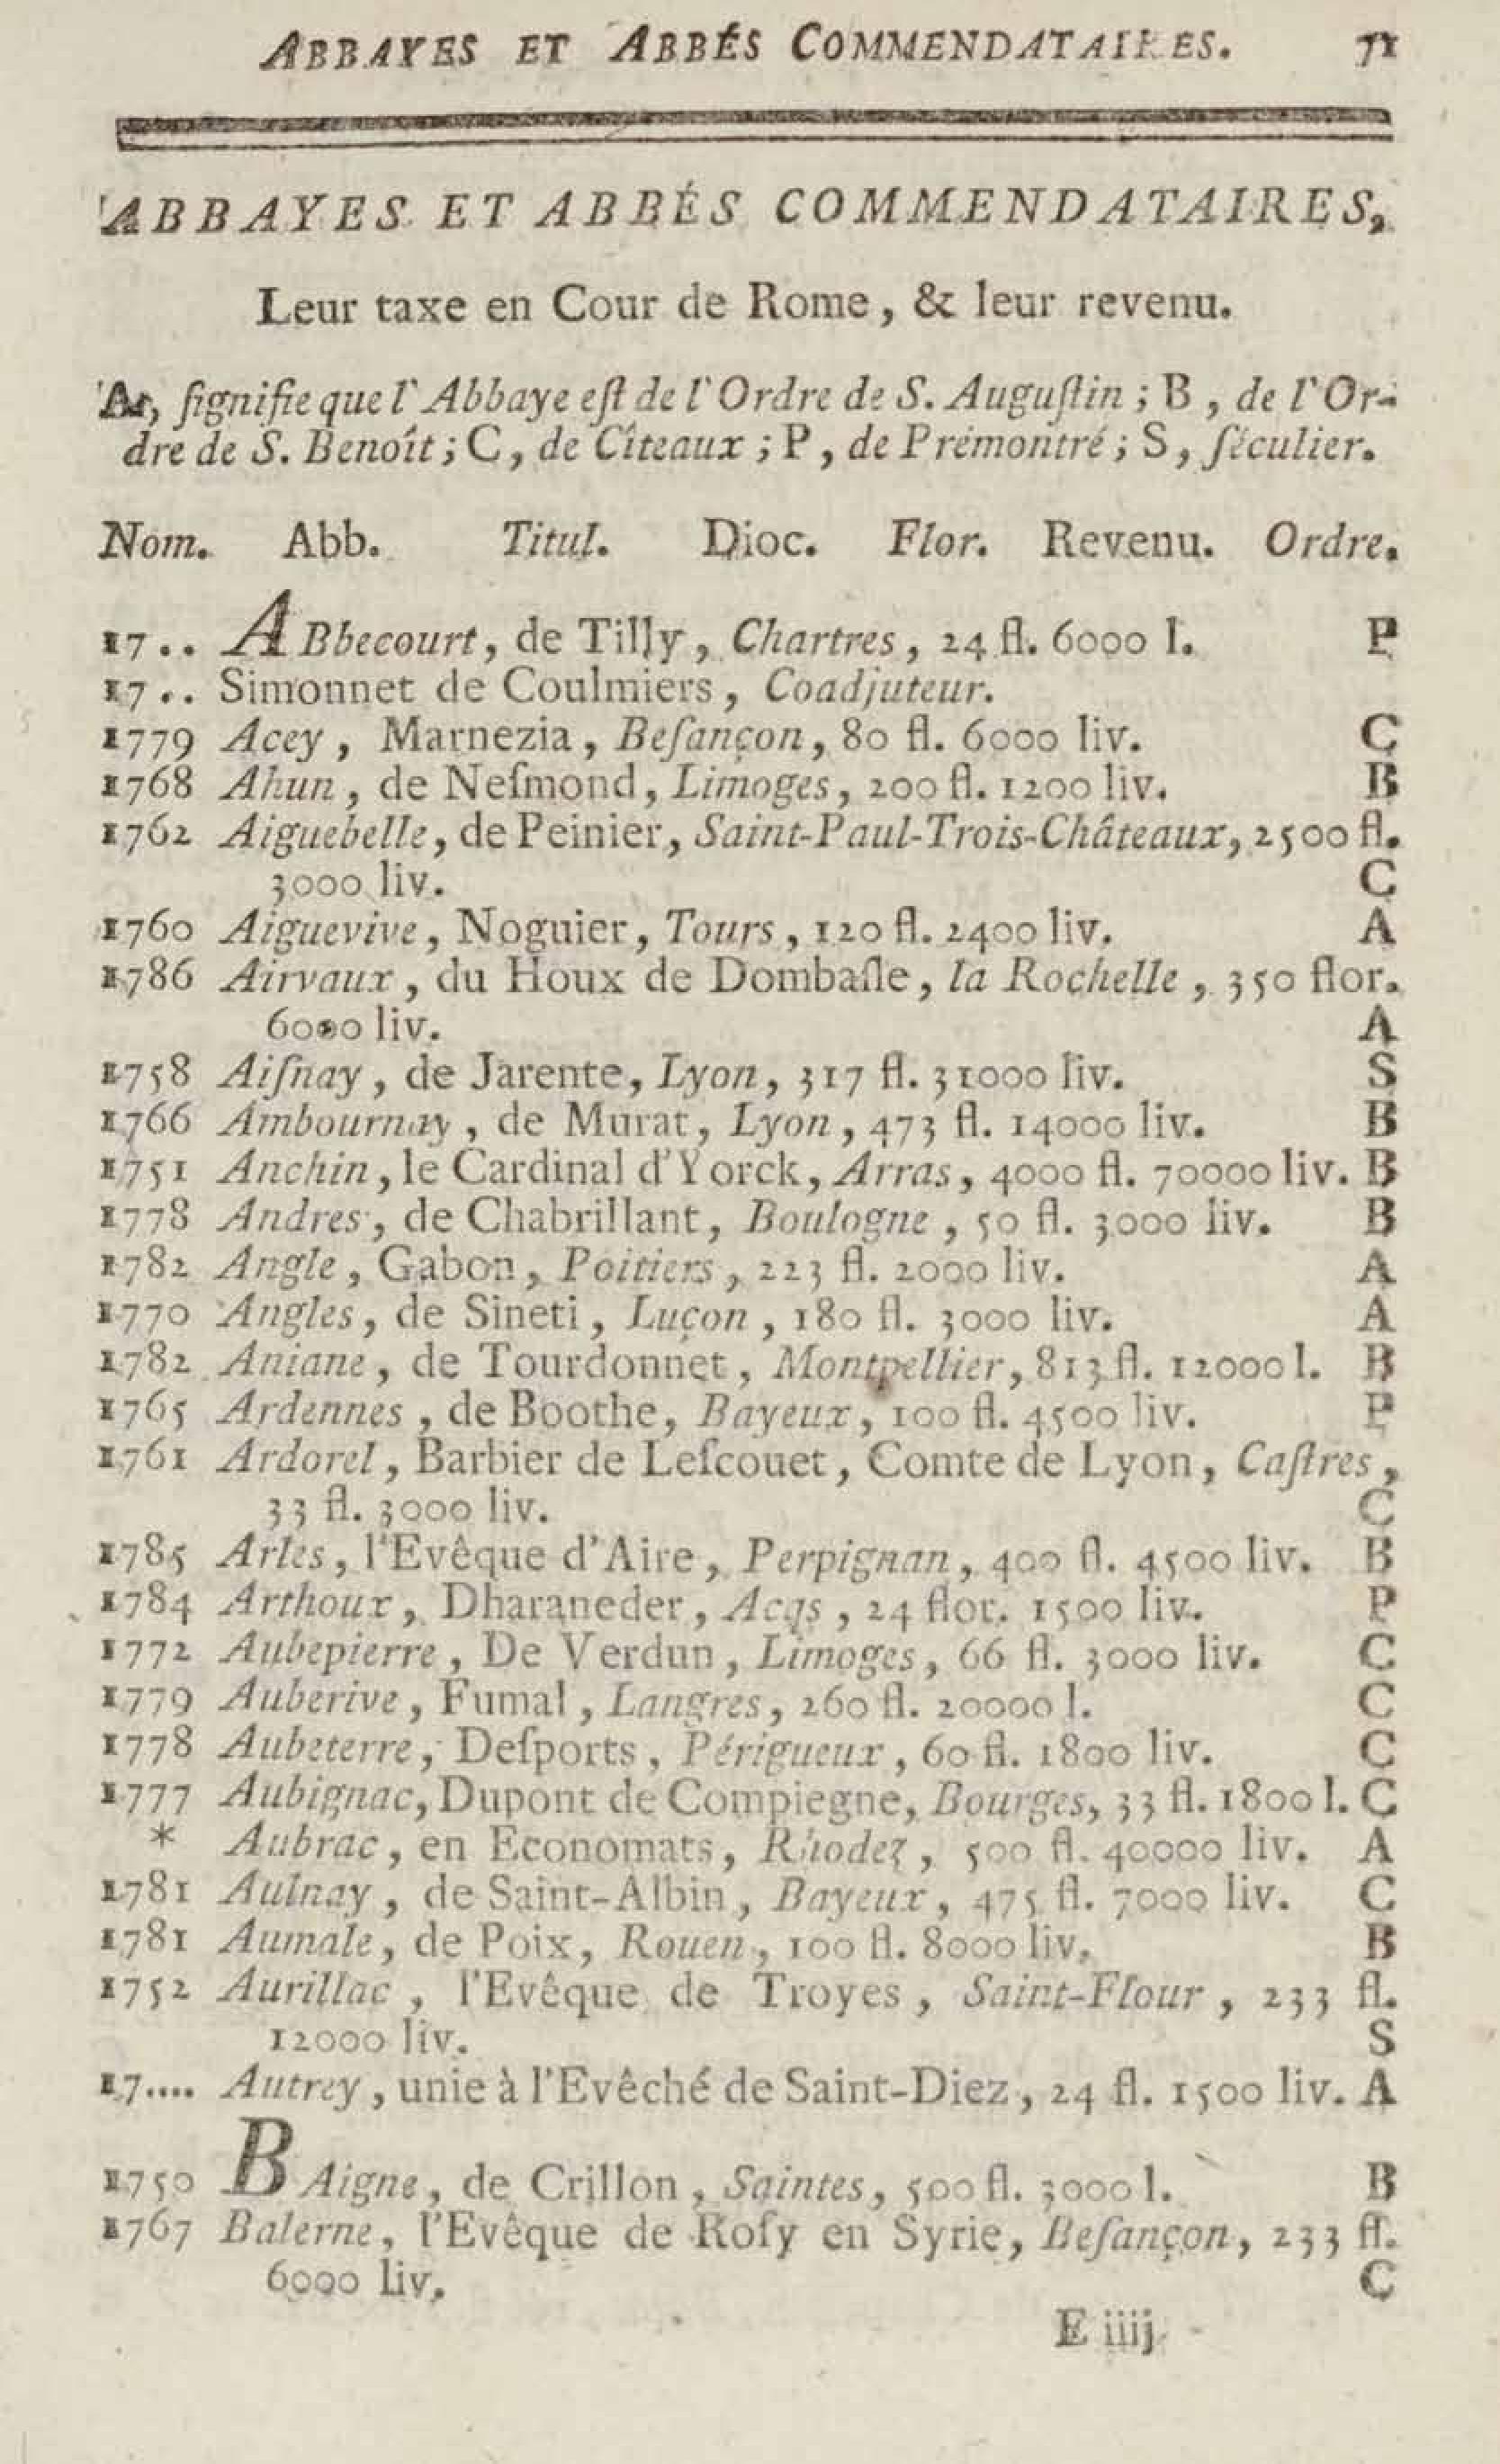 ABBAYES ET ABBÉS COMMENDATAIRES. 71
ABBAYES ET ABBÉS COMMENDATAIRES,
Leur taxe en Cour de Rome, & leur revenu.
A, ſignifie que l'Abbaye eſt de l'Ordre de S. Auguſtin; B, de l'Or-
dre de S. Benoît; C, de Cîteaux; P, de Prémontré; S, ſéculier.
Nom. Abb. Titul. Dioc. Flor. Revenu. Ordre.
17.. ABbecourt, de Tilly, Chartres, 24 fl. 6000 l. P
17.. Simonnet de Coulmiers, Coadjuteur.
1779 Acey, Marnezia, Beſançon, 80 fl. 6000 liv. C
1768 Ahun, de Neſmond, Limoges, 200 fl. 1200 liv. B
1762 Aiguebelle, de Peinier, Saint-Paul-Trois-Châteaux, 2500 fl.
3000 liv. C
1760 Aiguevive, Noguier, Tours, 120 fl. 2400 liv. A
1786 Airvaux, du Houx de Dombaſle, la Rochelle, 350 flor.
6000 liv. A
1758 Aiſnay, de Jarente, Lyon, 317 fl. 31000 liv. S
1766 Ambournay, de Murat, Lyon, 473 fl. 14000 liv. B
1751 Anchin, le Cardinal d'Yorck, Arras, 4000 fl. 70000 liv. B
1778 Andres, de Chabrillant, Boulogne, 50 fl. 3000 liv. B
1782 Angle, Gabon, Poitiers, 223 fl. 2000 liv. A
1770 Angles, de Sineti, Luçon, 180 fl. 3000 liv. A
1782 Aniane, de Tourdonnet, Montpellier, 813 fl. 12000 l. B
1765 Ardennes, de Boothe, Bayeux, 100 fl. 4500 liv. P
1761 Ardorel, Barbier de Leſcouet, Comte de Lyon, Caſtres,
33 fl. 3000 liv. C
1785 Arles, l'Evêque d'Aire, Perpignan, 400 fl. 4500 liv. B
1784 Arthoux, Dharaneder, Acqs, 24 flor. 1500 liv. P
1772 Aubepierre, De Verdun, Limoges, 66 fl. 3000 liv. C
1779 Auberive, Fumal, Langres, 260 fl. 20000 l. C
1778 Aubeterre, Deſports, Périgueux, 60 fl. 1800 liv. C
1777 Aubignac, Dupont de Compiegne, Bourges, 33 fl. 1800 l. C
* Aubrac, en Economats, Rhodez, 500 fl. 40000 liv. A
1781 Aulnay, de Saint-Albin, Bayeux, 475 fl. 7000 liv. C
1781 Aumale, de Poix, Rouen, 100 fl. 8000 liv. B
1752 Aurillac, l'Evêque de Troyes, Saint-Flour, 233 fl.
12000 liv. S
17.... Autrey, unie à l'Evêché de Saint-Diez, 24 fl. 1500 liv. A
1750 BAigne, de Crillon, Saintes, 500 fl. 3000 l. B
1767 Balerne, l'Evêque de Roſy en Syrie, Beſançon, 233 fl.
6000 liv. C
E iiij